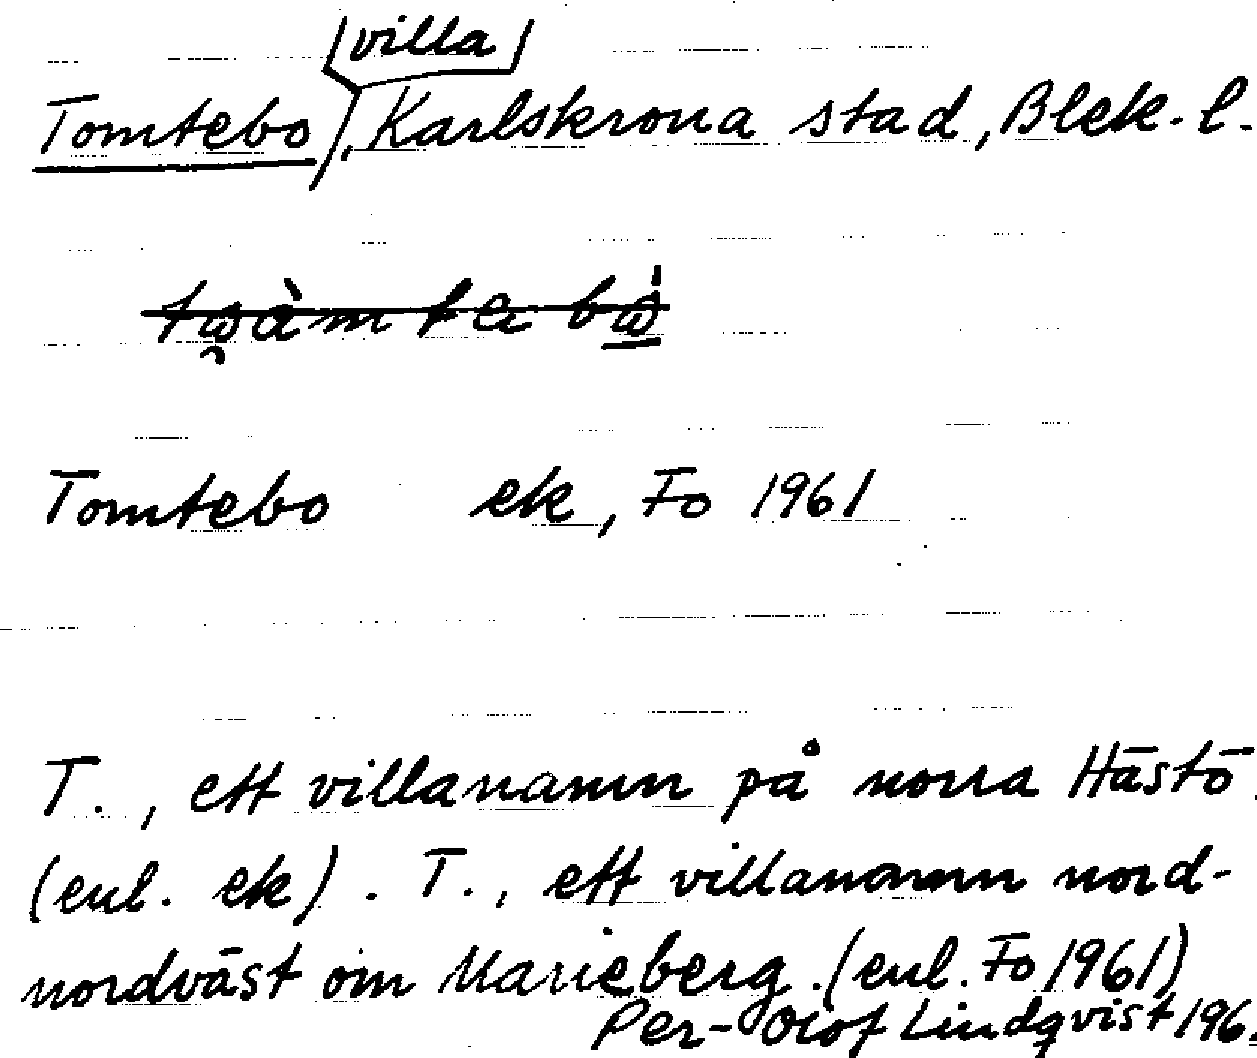 villa
Tomtebo, Karlskrona stad, Blek. l.
Tomtebo ek, Fo 1961
T., ett villanamn på norra Hästö
(enl. ek). T., ett villanamn nord-
nordväst om Marieberg. (enl. Fo 1961)
Per-Olof Lindqvist 196